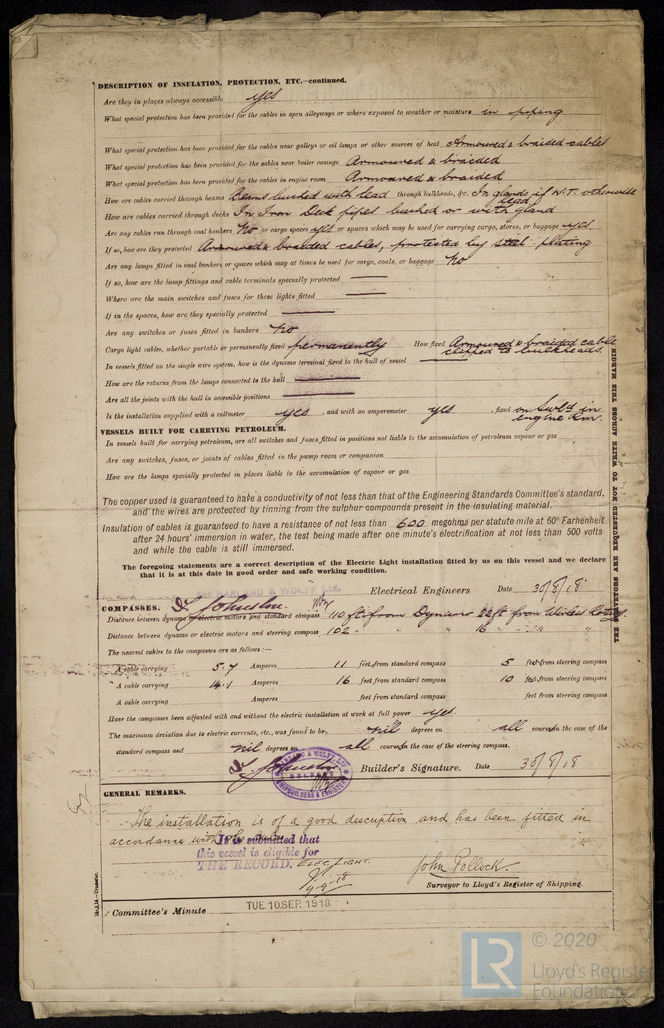 DESCRIPTION OF INSULATION, PROTECTION, ETC.—continued.
Are they in places always accessible yes
What special protection has been provided for the cables in open alleyways or where exposed to weather or moisture in piping
What special protection has been provided for the cables near galleys or oil lamps or other sources of heat Armoured & braided cables
What special protection has been provided for the cables near boiler casings Armoured & braided
What special protection has been provided for the cables in engine room Armoured & braided
How are cables carried through beams Beams bushed with lead through bulkheads, &c. In glands if W.T. otherwise lead
How are cables carried through decks In Iron Deck pipes bushed or with gland
Are any cables run through coal bunkers No or cargo spaces yes or spaces which may be used for carrying cargo, stores, or baggage yes.
If so, how are they protected Armoured & braided cables, protected by steel plating
Are any lamps fitted in coal bunkers or spaces which may at times be used for cargo, coals, or baggage No
If so, how are the lamp fittings and cable terminals specially protected
Where are the main switches and fuses for these lights fitted
If in the spaces, how are they specially protected
Are any switches or fuses fitted in bunkers No
Cargo light cables, whether portable or permanently fixed permanently How fixed Armoured & braided cable clipped to bulkheads.
In vessels fitted on the single wire system, how is the dynamo terminal fixed to the hull of vessel
How are the returns from the lamps connected to the hull
Are all the joints with the hull in accessible positions
Is the installation supplied with a voltmeter yes, and with an amperemeter yes, fixed on Swbd in engine Rm.
VESSELS BUILT FOR CARRYING PETROLEUM.
In vessels built for carrying petroleum, are all switches and fuses fitted in positions not liable to the accumulation of petroleum vapour or gas
Are any switches, fuses, or joints of cables fitted in the pump room or companion
How are the lamps specially protected in places liable to the accumulation of vapour or gas
The copper used is guaranteed to have a conductivity of not less than that of the Engineering Standards Committee's standard,
and the wires are protected by tinning from the sulphur compounds present in the insulating material.
Insulation of cables is guaranteed to have a resistance of not less than 600 megohms per statute mile at 60° Farhenheit
after 24 hours' immersion in water, the test being made after one minute's electrification at not less than 500 volts
and while the cable is still immersed.
The foregoing statements are a correct description of the Electric Light installation fitted by us on this vessel and we declare
that it is at this date in good order and safe working condition.
HARLAND & WOLFF Ltd.
Johnston Electrical Engineers Date 30/8/18
COMPASSES.
Distance between dynamo or electric motors and standard compass 110 ft from Dynamo 22ft from Wireless
Distance between dynamo or electric motors and steering compass 102 " " " 16 " " "
The nearest cables to the compasses are as follows:—
A cable carrying 5.7 Amperes 11 feet from standard compass 5 feet from steering compass
A cable carrying 14.1 Amperes 16 feet from standard compass 10 feet from steering compass
A cable carrying Amperes feet from standard compass feet from steering compass
Have the compasses been adjusted with and without the electric installation at work at full power yes.
The maximum deviation due to electric currents, etc., was found to be nil degrees on all course in the case of the
standard compass and nil degrees on all course in the case of the steering compass.
HARLAND & WOLFF LTD
BELFAST
SHIPBUILDERS & ENGINEERS
Johnston Builder's Signature. Date 30/8/18
GENERAL REMARKS.
The installation is of a good description and has been fitted in
accordance with the rules
It is submitted that
this vessel is eligible for
THE RECORD. ELEC. LIGHT.
John Pollock.
Surveyor to Lloyd's Register of Shipping.
Committee's Minute TUE. 10 SEP. 1918
THE SURVEYORS ARE REQUESTED NOT TO WRITE ACROSS THIS MARGIN
LR
© 2020
Lloyd's Register
Foundation